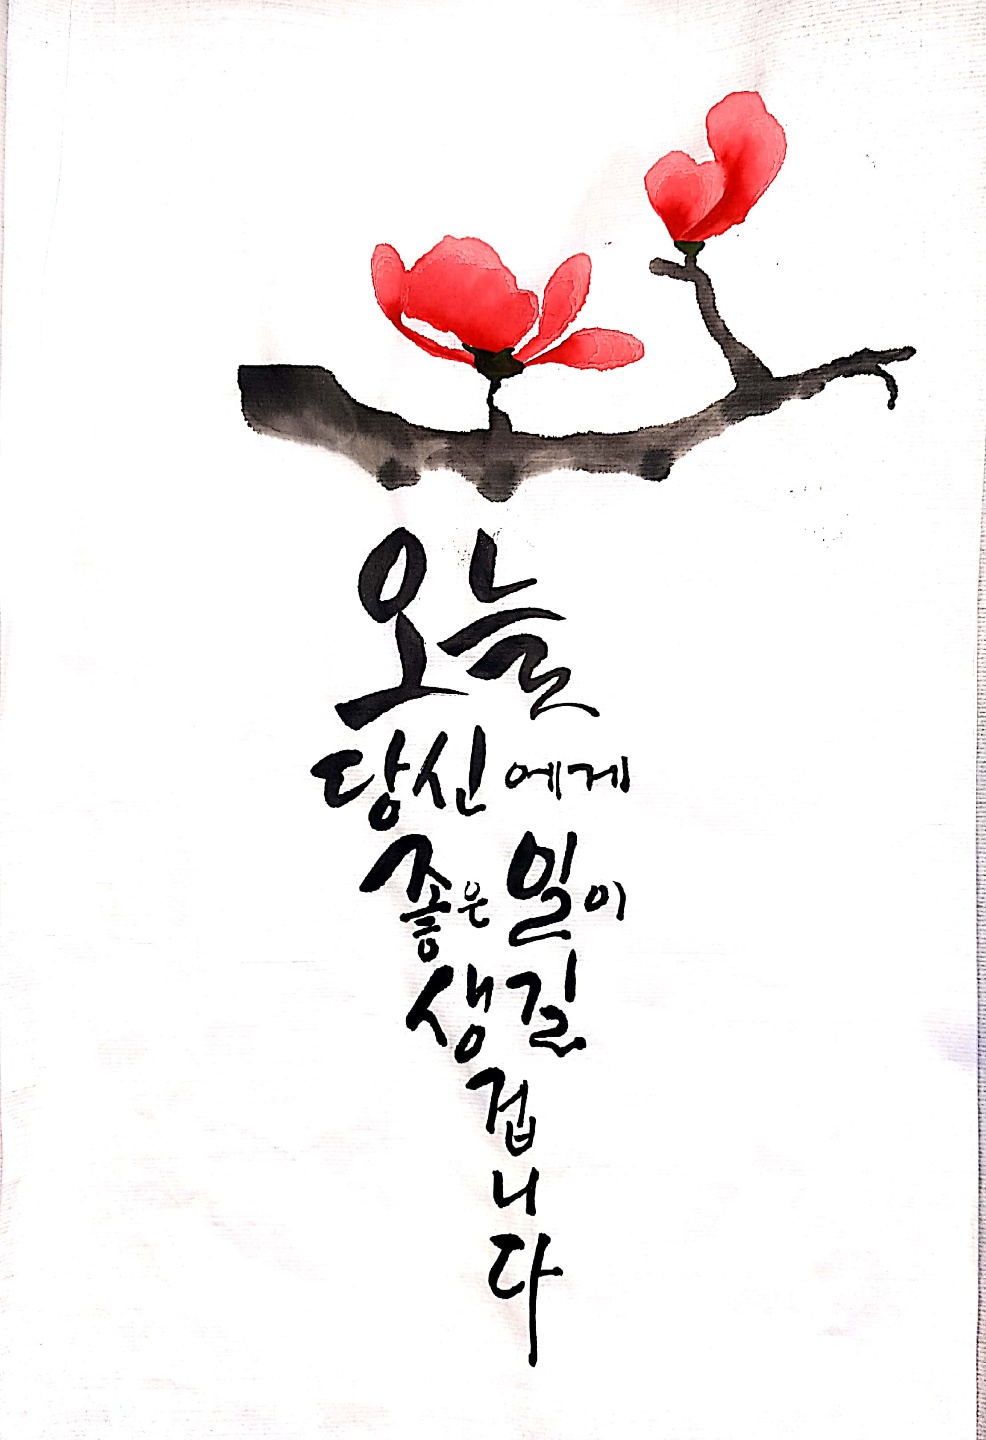 오늘
당신에게
좋은 일이
생길
겁
니
다